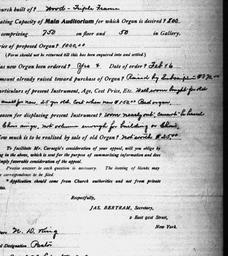 urch built of? Wood - Triple Frame
ating Capacity of Main Auditorium for which Organ is desired? 800.
comprising 750 on floor and 50 in Gallery.
rice of proposed Organ? 1000.00
(Form should not be returned till this has been enquired into and settled.)
as new Organ been ordered? Yes Date of order? Feb 16
mount already raised toward purchase of Organ? Raised by Subscription
articulars of present Instrument, Age, Cost Price, Etc.
25 yrs old. Cost when new
eason for displacing present Instrument? Worn nearly out,
not volume enough for building or Choir,
ow much is to be realized by sale of old Organ? Not worth
To facilitate Mr. Carnegie's consideration of your appeal, will you oblige
ng in the above, which is sent for the purpose of summarizing information and does
imply favorable consideration of the appeal.
Precise answer to each question is necessary. The leaving of blanks
correspondence to be
* Application should come from Church authorities and not from private
Respectfully,
JAS. BERTRAM, Secretary,
2 East 91st Street,
New York.
King
l Designation. Pastor